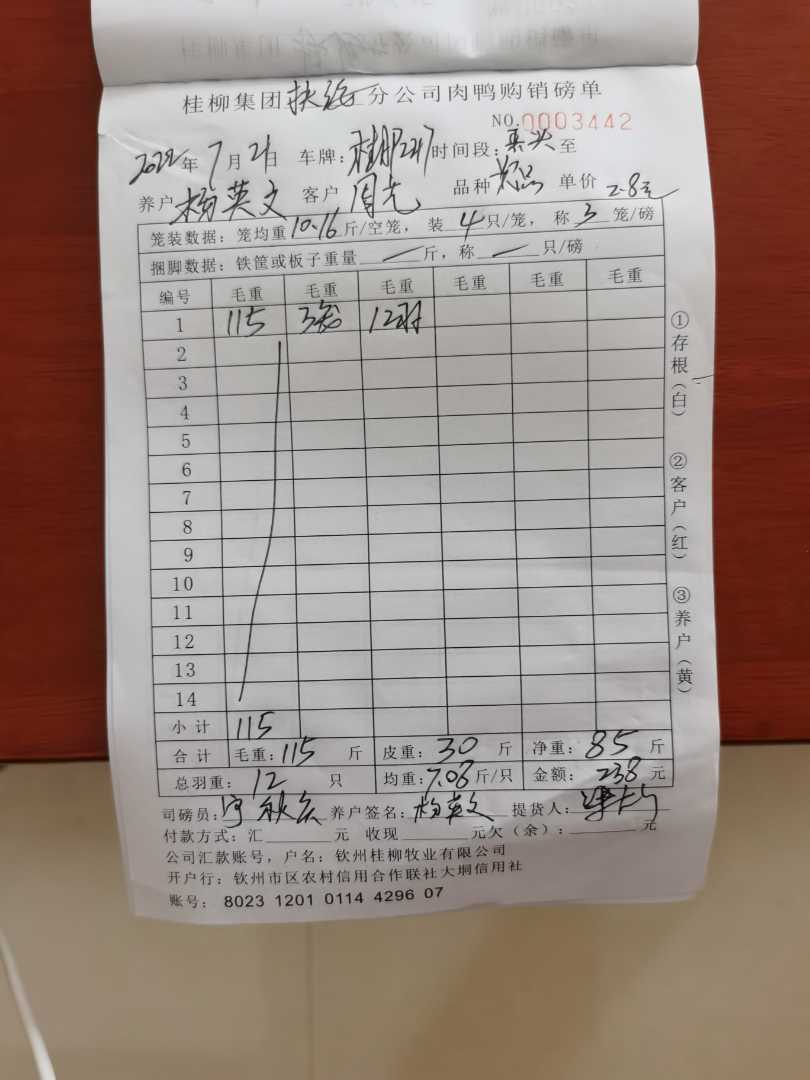 桂柳集团扶绥分公司肉鸭购销磅单
NO.0003442
2022年7月21日 车牌: 时间段: 至
养户 杨英文 客户 周先 品种 单价 2.8元
笼装数据：笼均重10.16斤/空笼，装4只/笼，称3笼/磅
捆脚数据：铁筐或板子重量 斤，称 只/磅
编号 毛重 毛重 毛重 毛重 毛重 毛重
1 115 3笼 12羽
2
3
4
5
6
7
8
9
10
11
12
13
14
小计 115
合计 毛重：115 斤 皮重：30 斤 净重：85 斤
总羽重：12 只 均重：7.08斤/只 金额：238元
司磅员： 养户签名：杨英文 提货人：
付款方式：汇 元 收现 元欠（余）： 元
公司汇款账号，户名：钦州桂柳牧业有限公司
开户行：钦州市区农村信用合作联社大垌信用社
账号：8023 1201 0114 4296 07
①存根（白）
②客户（红）
③养户（黄）